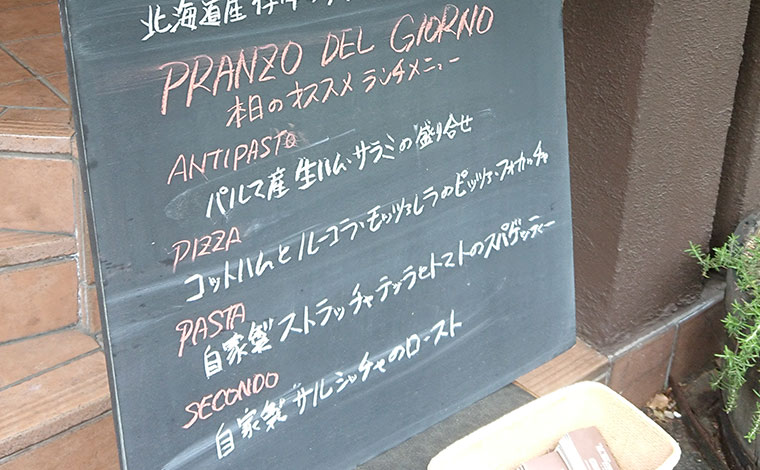 北海道産
PRANZO DEL GIORNO
本日のオススメ ランチメニュー
ANTIPASTO
パルマ産 生ハム・サラミの盛り合せ
PIZZA
コットハムとルーコラ・モッツァレラのピッツァ・フォカッチャ
PASTA
自家製 ストラッチャテッラとトマトのスパゲッティー
SECONDO
自家製 サルシッチャのロースト